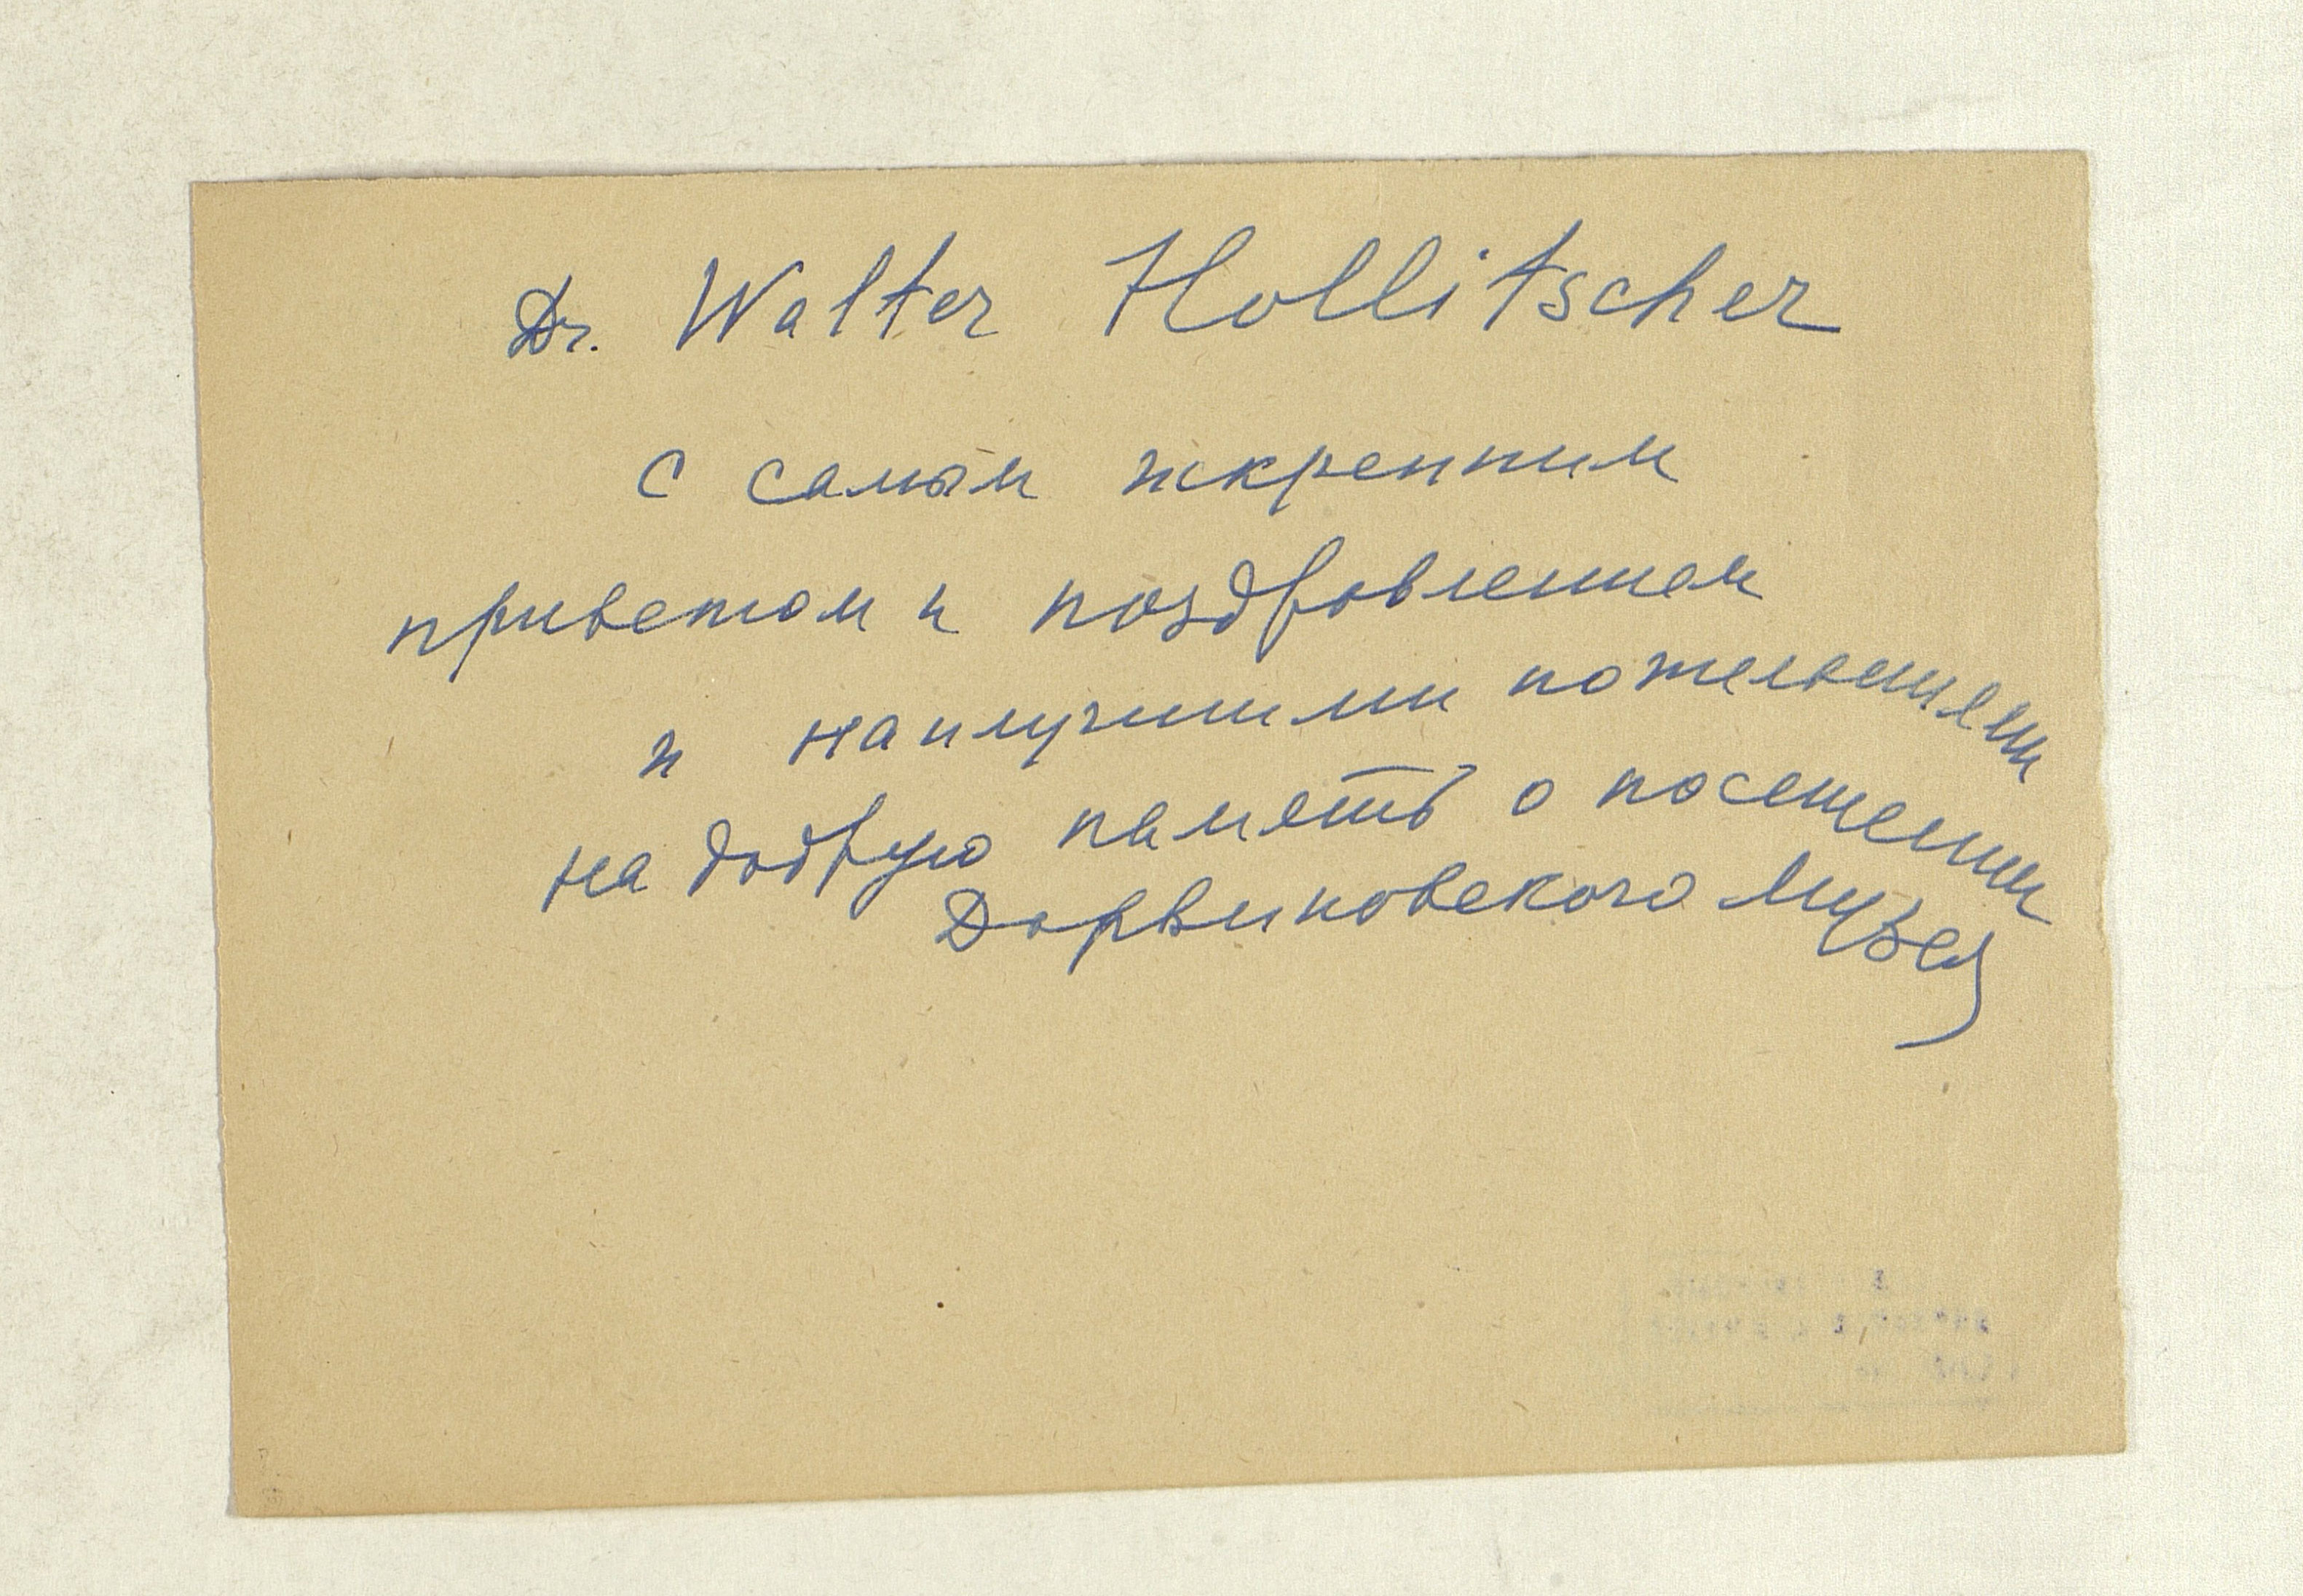 Dr. Walter Hollitscher
с самым искренним
приветом и поздравлением
и наилучшими пожеланиями
на добрую память о посещении
Дарвиновского Музея